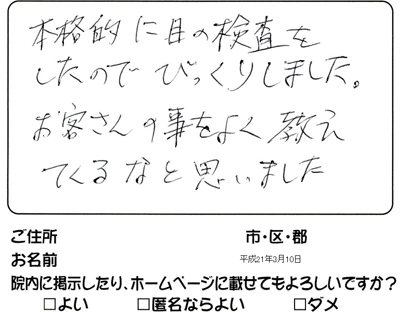 本格的に目の検査を
したのでびっくりしました。
お客さんの事をよく教え
てくるなと思いました
ご住所 市・区・郡
お名前 平成21年3月10日
院内に掲示したり、ホームページに載せてもよろしいですか?
□よい □匿名ならよい □ダメ